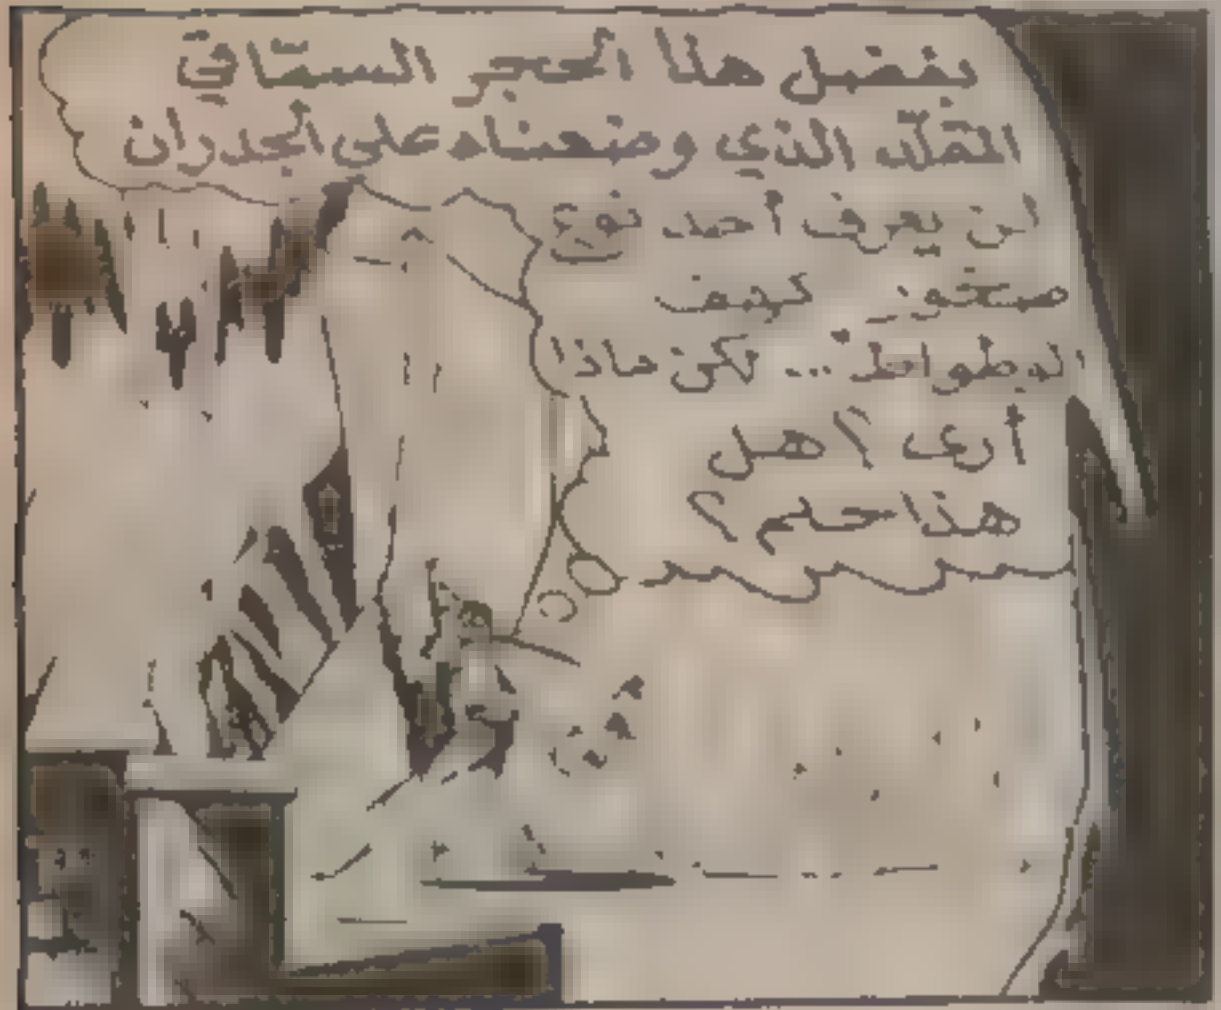 بفضل هذا الحجر السمّاقيّ
المقلّد الذي وضعناه على الجدران
لن يعرف أحد نوع
صخور كهف
الوطواط... لكن ماذا
أرى ! هل
هذا حلم ؟